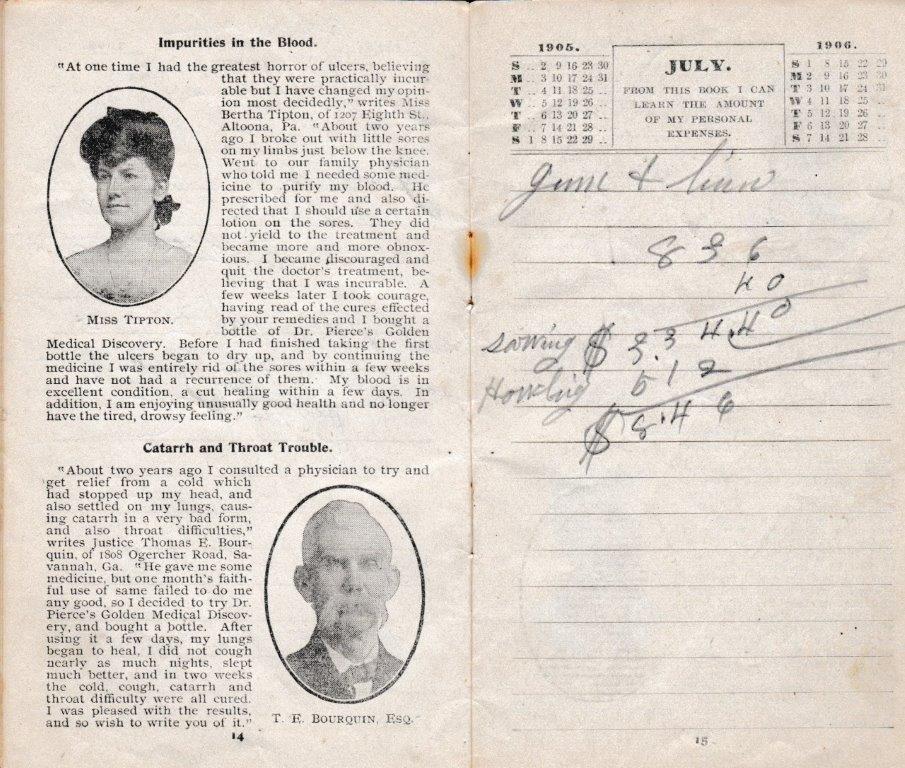 Impurities in the Blood.
"At one time I had the greatest horror of ulcers, believing
that they were practically incur-
able but I have changed my opin-
ion most decidedly," writes Miss
Bertha Tipton, of 1207 Eighth St.,
Altoona, Pa. "About two years
ago I broke out with little sores
on my limbs just below the knee.
Went to our family physician
who told me I needed some med-
icine to purify my blood. He
prescribed for me and also di-
rected that I should use a certain
lotion on the sores. They did
not yield to the treatment and
became more and more obnox-
ious. I became discouraged and
quit the doctor's treatment, be-
lieving that I was incurable. A
few weeks later I took courage,
having read of the cures effected
by your remedies and I bought a
bottle of Dr. Pierce's Golden
Medical Discovery. Before I had finished taking the first
bottle the ulcers began to dry up, and by continuing the
medicine I was entirely rid of the sores within a few weeks
and have not had a recurrence of them. My blood is in
excellent condition, a cut healing within a few days. In
addition, I am enjoying unusually good health and no longer
have the tired, drowsy feeling."
MISS TIPTON.
Catarrh and Throat Trouble.
"About two years ago I consulted a physician to try and
get relief from a cold which
had stopped up my head, and
also settled on my lungs, caus-
ing catarrh in a very bad form,
and also throat difficulties,"
writes Justice Thomas E. Bour-
quin, of 1808 Ogercher Road, Sa-
vannah, Ga. "He gave me some
medicine, but one month's faith-
ful use of same failed to do me
any good, so I decided to try Dr.
Pierce's Golden Medical Discov-
ery, and bought a bottle. After
using it a few days, my lungs
began to heal, I did not cough
nearly as much nights, slept
much better, and in two weeks
the cold, cough, catarrh and
throat difficulty were all cured.
I was pleased with the results,
and so wish to write you of it."
T. E. BOURQUIN, ESQ.
14
1905.
S .. 2 9 16 23 30
M .. 3 10 17 24 31
T .. 4 11 18 25 ..
W .. 5 12 19 26 ..
T .. 6 13 20 27 ..
F .. 7 14 21 28 ..
S 1 8 15 22 29 ..
JULY.
FROM THIS BOOK I CAN
LEARN THE AMOUNT
OF MY PERSONAL
EXPENSES.
1906.
S 1 8 15 22 29
M 2 9 16 23 30
T 3 10 17 24 31
W 4 11 18 25 ..
T 5 12 19 26 ..
F 6 13 20 27 ..
S 7 14 21 28 ..
836
40
$ 3.344.40
512
$ 8.46
15